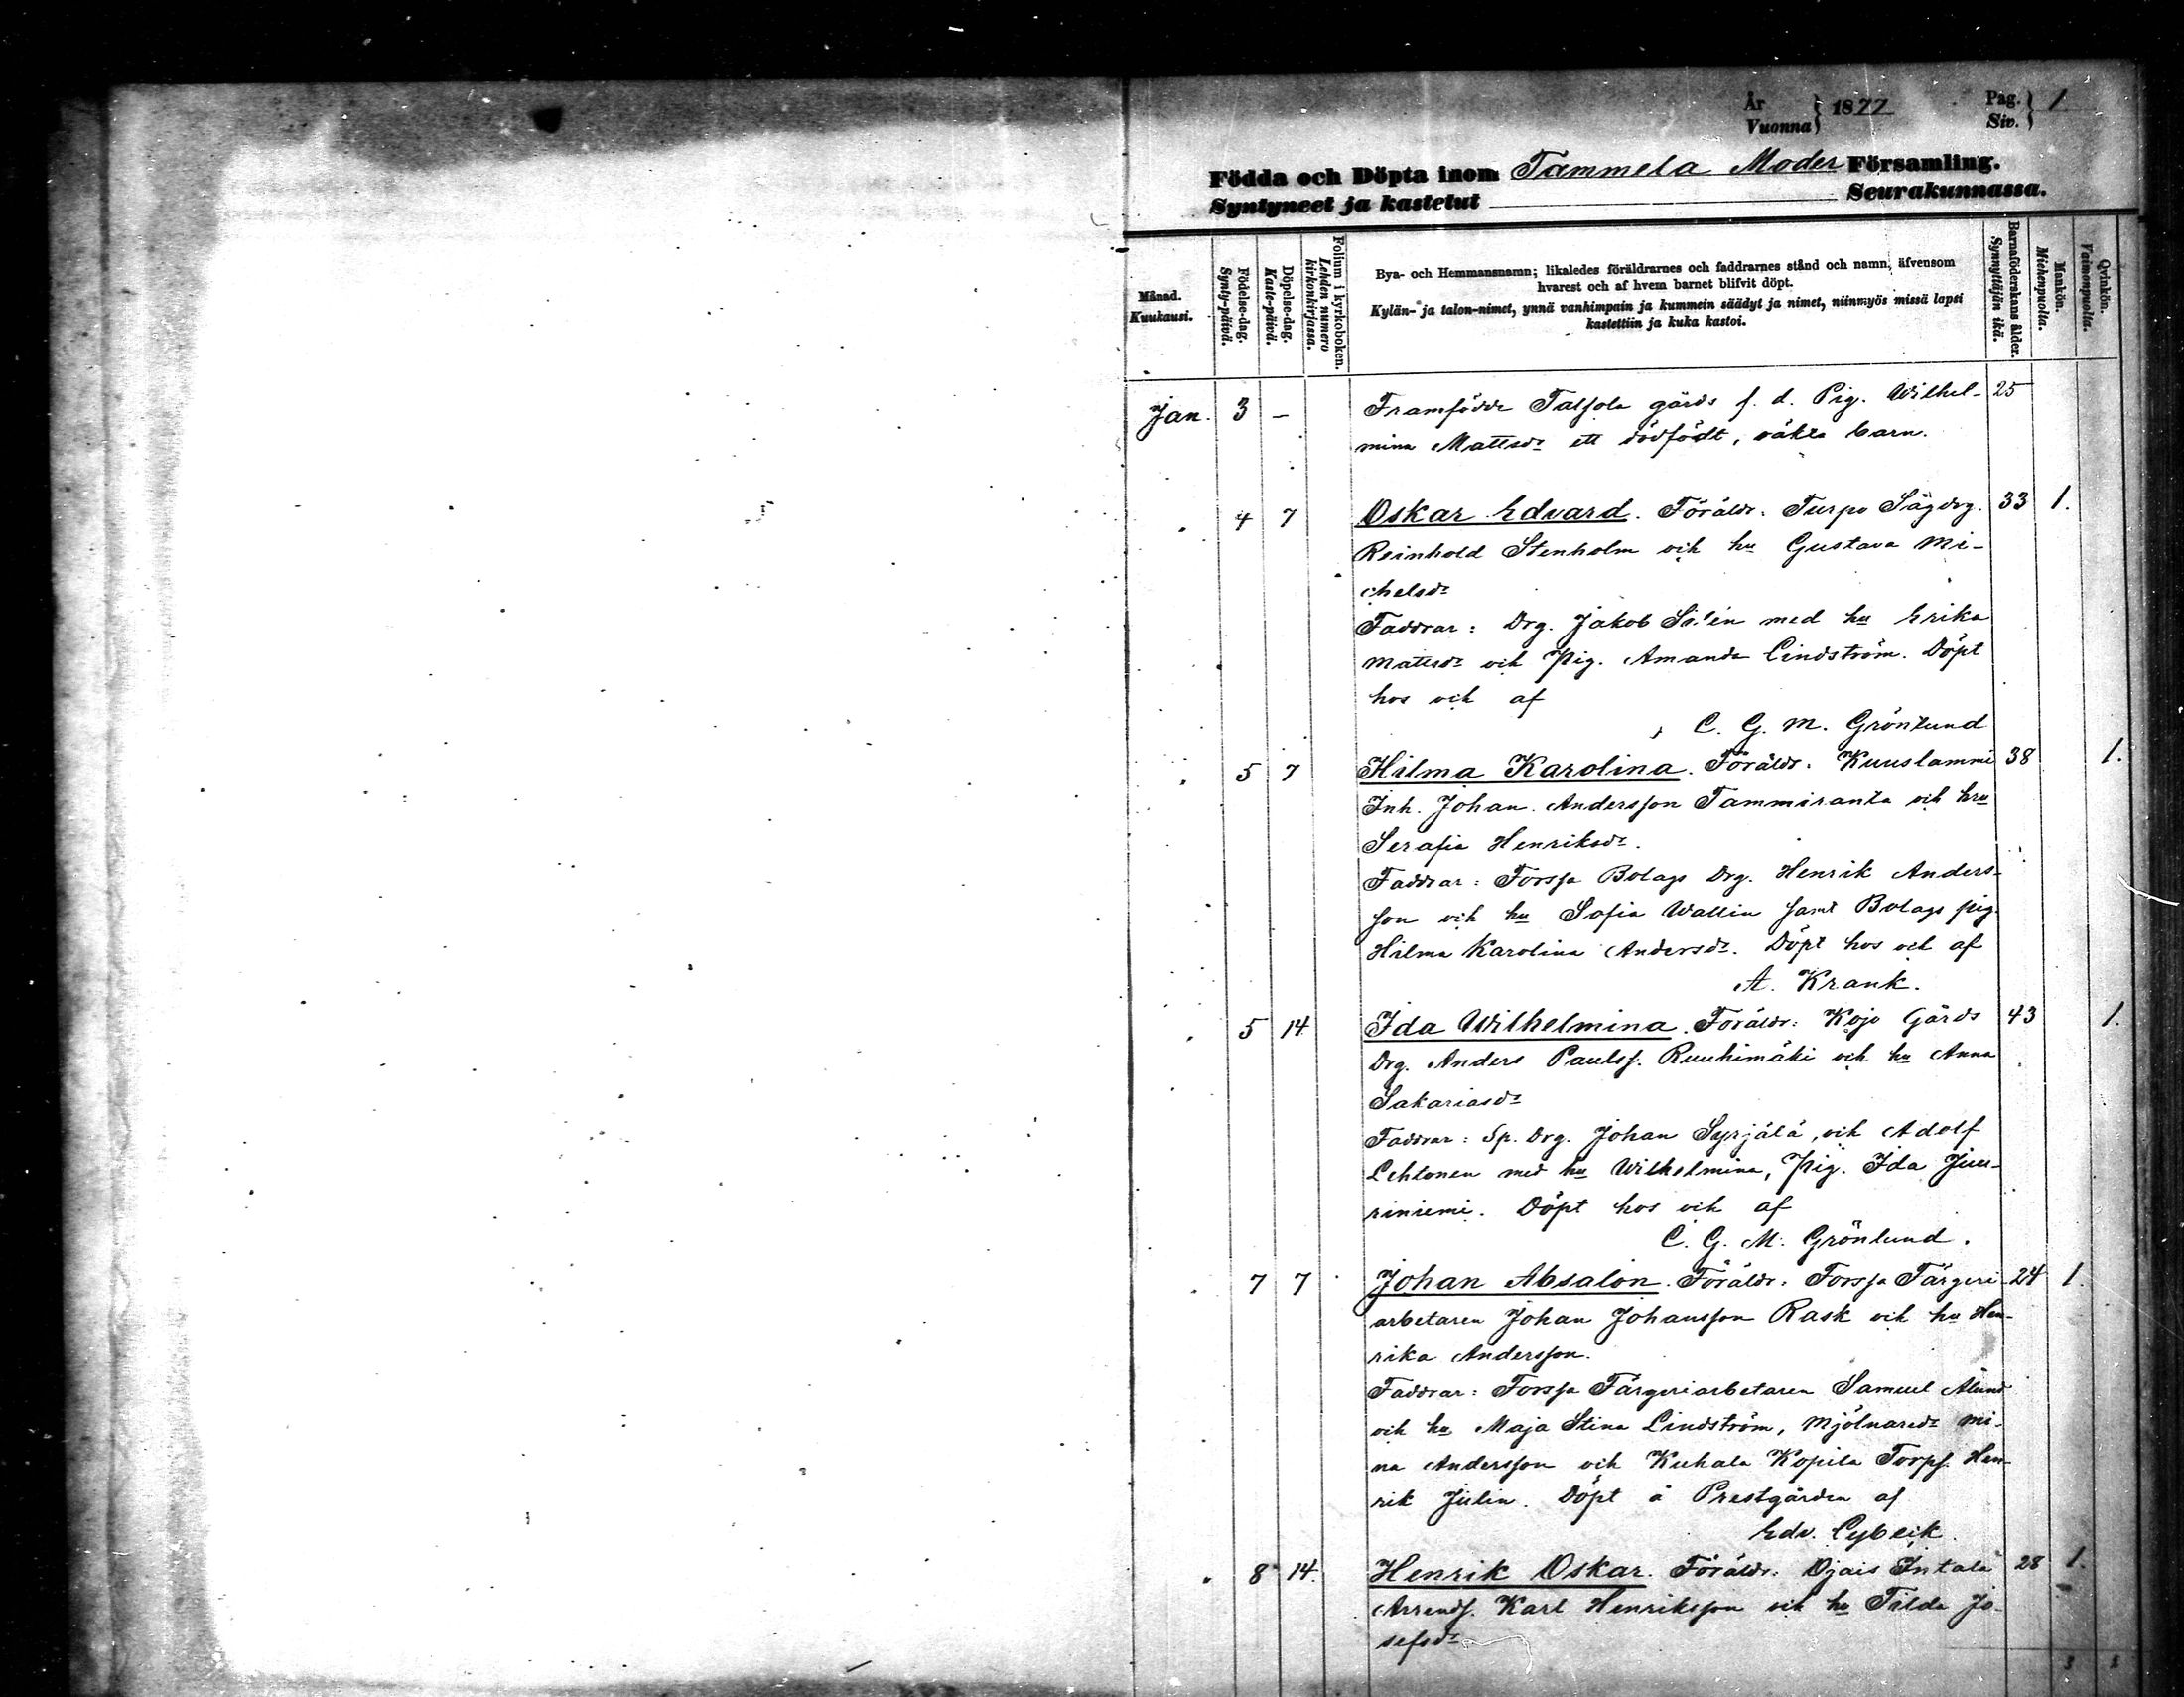 År
Vuonna } 1877
Pag.
Siv. } 1
Födda och Döpta inom Tammela Moder Församling.
Syntyneet ja kastetut Seurakunnassa.
Månad.
Kuukausi.
Födelse-dag.
Synty-päivä.
Döpelse-dag.
Kaste-päivä.
Folium i kyrkoboken.
Lehden numero
kirkonkirjassa.
Bya- och Hemmansnamn; likaledes föräldrarnes och faddrarnes stånd och namn, äfvensom
hvarest och af hvem barnet blifvit döpt.
Kylän- ja talon-nimet, ynnä vanhimpain ja kummein säädyt ja nimet, niinmyös missä lapsi
kastettiin ja kuka kastoi.
Barnaföderskans ålder.
Synnyttäjän ikä.
Mankön.
Miehenpuolta.
Qvinkön.
Vaimonpuolta.
Jan. 3 – Framfödde Talsola gårds f. d. Pig. Wilhel- 25
mina Mattsdr ett dödfödt, oäkta barn.
4 7 Oskar Edvard. Föräldr. Turpo Sågdrg. 33 1.
Reinhold Stenholm och hu Gustava Mi-
chelsdr
Faddrar: Drg. Jakob Silén med hu Erika
Mattsdr och Pig. Amanda Lindström. Döpt
hos och af
C. G. M. Grönlund
5 7 Hilma Karolina. Föräldr. Kuuslammi 38 1.
Inh. Johan Andersson Tammiranta och hru
Serafia Henriksdr.
Faddrar: Forssa Bolags Drg. Henrik Anders-
son och hu Sofia Wallin samt Bolags pig.
Hilma Karolina Andersdr. Döpt hos och af
A. Krank.
5 14 Ida Wilhelmina. Föräldr: Kojo Gårds 43 1.
Drg. Anders Paulss. Ruuhimäki och hu Anna
Sakariasdr
Faddrar: Sp. Drg. Johan Syrjälä, och Adolf
Lehtonen med hu Wilhelmina, Pig. Ida Juu-
riniemi. Döpt hos och af
C. G. M. Grönlund.
7 7 Johan Absalon. Föräldr: Forssa Färgeri- 24 1.
arbetaren Johan Johansson Rask och hu Hen-
rika Andersson.
Faddrar: Forssa Färgeriarbetaren Samuel Ålund
och hu Maja Stina Lindström, Mjölnaredr Mi-
na Andersson och Kuhala Kopila Torps. Hen-
rik Julin. Döpt å Prestgården af
Edv. Cybeik.
8 14. Henrik Oskar. Föräldr: Ojais Intala 28 1.
Arrends. Karl Henriksson och hu Tilda Jo-
sefsdr
3 2